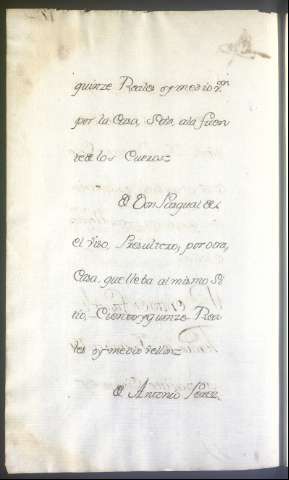 quinze Reales y medio v.on
por la Casa, Sita, ala fuen
te de los Cueros=
D. Don Pasqual de
el viso, Presvitero, por otra,
Casa, que lleba al mismo Si
tio, Ciento y quinze Rea
les y medio vellon=
D. Antonio Perez